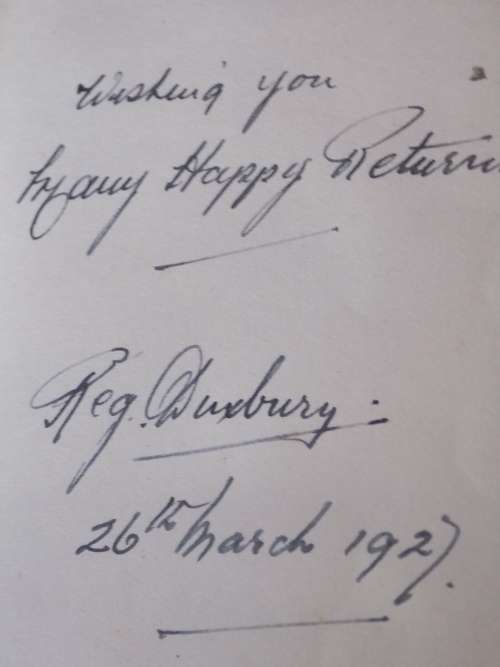 Wishing you
Many Happy Return
Reg. Duxbury:
26th March 1927.